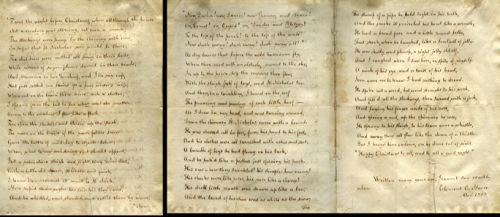 'Twas the night before Christmas, when all through the house
Not a creature was stirring, not even a mouse;
The stockings were hung by the chimney with care,
In hopes that St. Nicholas soon would be there;
The children were nestled all snug in their beds,
While visions of sugar plums danced in their heads;
And Mamma in her 'kerchief, and I in my cap,
Had just settled our brains for a long winter's nap;
When out on the lawn there arose such a clatter,
I sprang from the bed to see what was the matter.
Away to the window I flew like a flash,
Tore open the shutters and threw up the sash.
The moon on the breast of the new-fallen snow
Gave the lustre of mid-day to objects below,
When, what to my wondering eyes should appear,
But a miniature sleigh, and eight tiny rein-deer,
With a little old driver, so lively and quick,
I knew in a moment it must be St. Nick.
More rapid than eagles his coursers they came,
And he whistled, and shouted, and called them by name;
"Now, Dasher! now, Dancer! now, Prancer and Vixen!
On, Comet! on, Cupid! on, Donder and Blitzen!
To the top of the porch! to the top of the wall!
Now dash away! dash away! dash away all!"
As dry leaves that before the wild hurricane fly,
When they meet with an obstacle, mount to the sky;
So up to the house-top the coursers they flew,
With the sleigh full of toys, and St. Nicholas too.
And then, in a twinkling, I heard on the roof
The prancing and pawing of each little hoof—
As I drew in my head, and was turning around,
Down the chimney St. Nicholas came with a bound.
He was dressed all in fur, from his head to his foot,
And his clothes were all tarnished with ashes and soot;
A bundle of toys he had flung on his back,
And he look'd like a pedlar just opening his pack.
His eyes—how they twinkled! his dimples how merry!
His cheeks were like roses, his nose like a cherry!
His droll little mouth was drawn up like a bow,
And the beard of his chin was as white as the snow;
The stump of a pipe he held tight in his teeth,
And the smoke it encircled his head like a wreath;
He had a broad face and a little round belly,
That shook, when he laughed, like a bowlful of jelly.
He was chubby and plump, a right jolly old elf,
And I laughed when I saw him, in spite of myself.
A wink of his eye and a twist of his head,
Soon gave me to know I had nothing to dread.
He spoke not a word, but went straight to his work,
And fill'd all the stockings; then turned with a jerk,
And laying his finger aside of his nose,
And giving a nod, up the chimney he rose;
He sprang to his sleigh, to his team gave a whistle,
And away they all flew like the down of a thistle:
But I heard him exclaim, ere he drove out of sight,
"Happy Christmas to all, and to all a good night."
Clement C. Moore